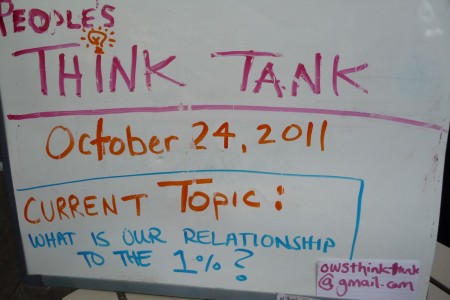 PEOPLE'S
THINK TANK
October 24, 2011
CURRENT TOPIC:
WHAT IS OUR RELATIONSHIP
TO THE 1%?
owsthinktank
@gmail.com